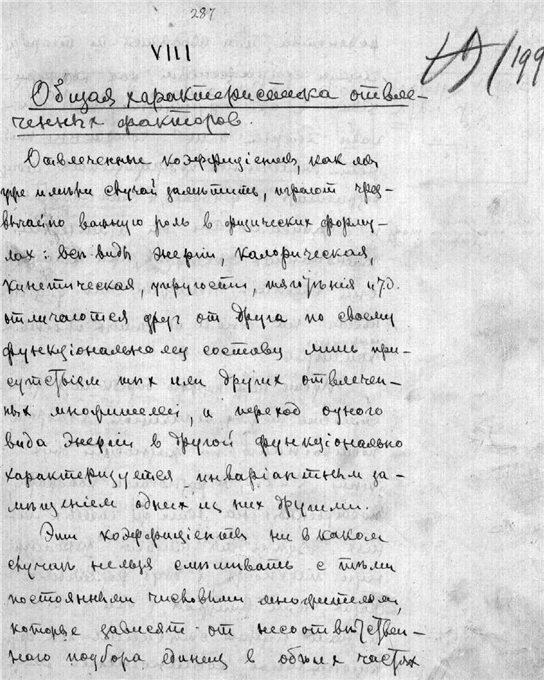 287
VIII
199
Общая характеристика отвле-
ченных факторов.
Отвлеченные коэффиціенты, как мы
уже имѣли случай замѣтить, играют чрез-
вычайно важную роль в физических форму-
лах: всѣ виды энергіи, калорическая,
кинетическая, упругости, тяготѣнія и т.д.
отличаются друг от друга по своему
функціональному составу лишь при-
сутствіем тѣх или других отвлечен-
ных множителей, и переход одного
вида энергіи в другой функціонально
характеризуется инваріантным за-
мѣщеніем одних из них другими.
Эти коэффиціенты ни в каком
случаѣ нельзя смѣшивать с тѣми
постоянными числовыми множителями,
которые зависят от несоотвѣтствен-
наго подбора единиц в обѣих частях